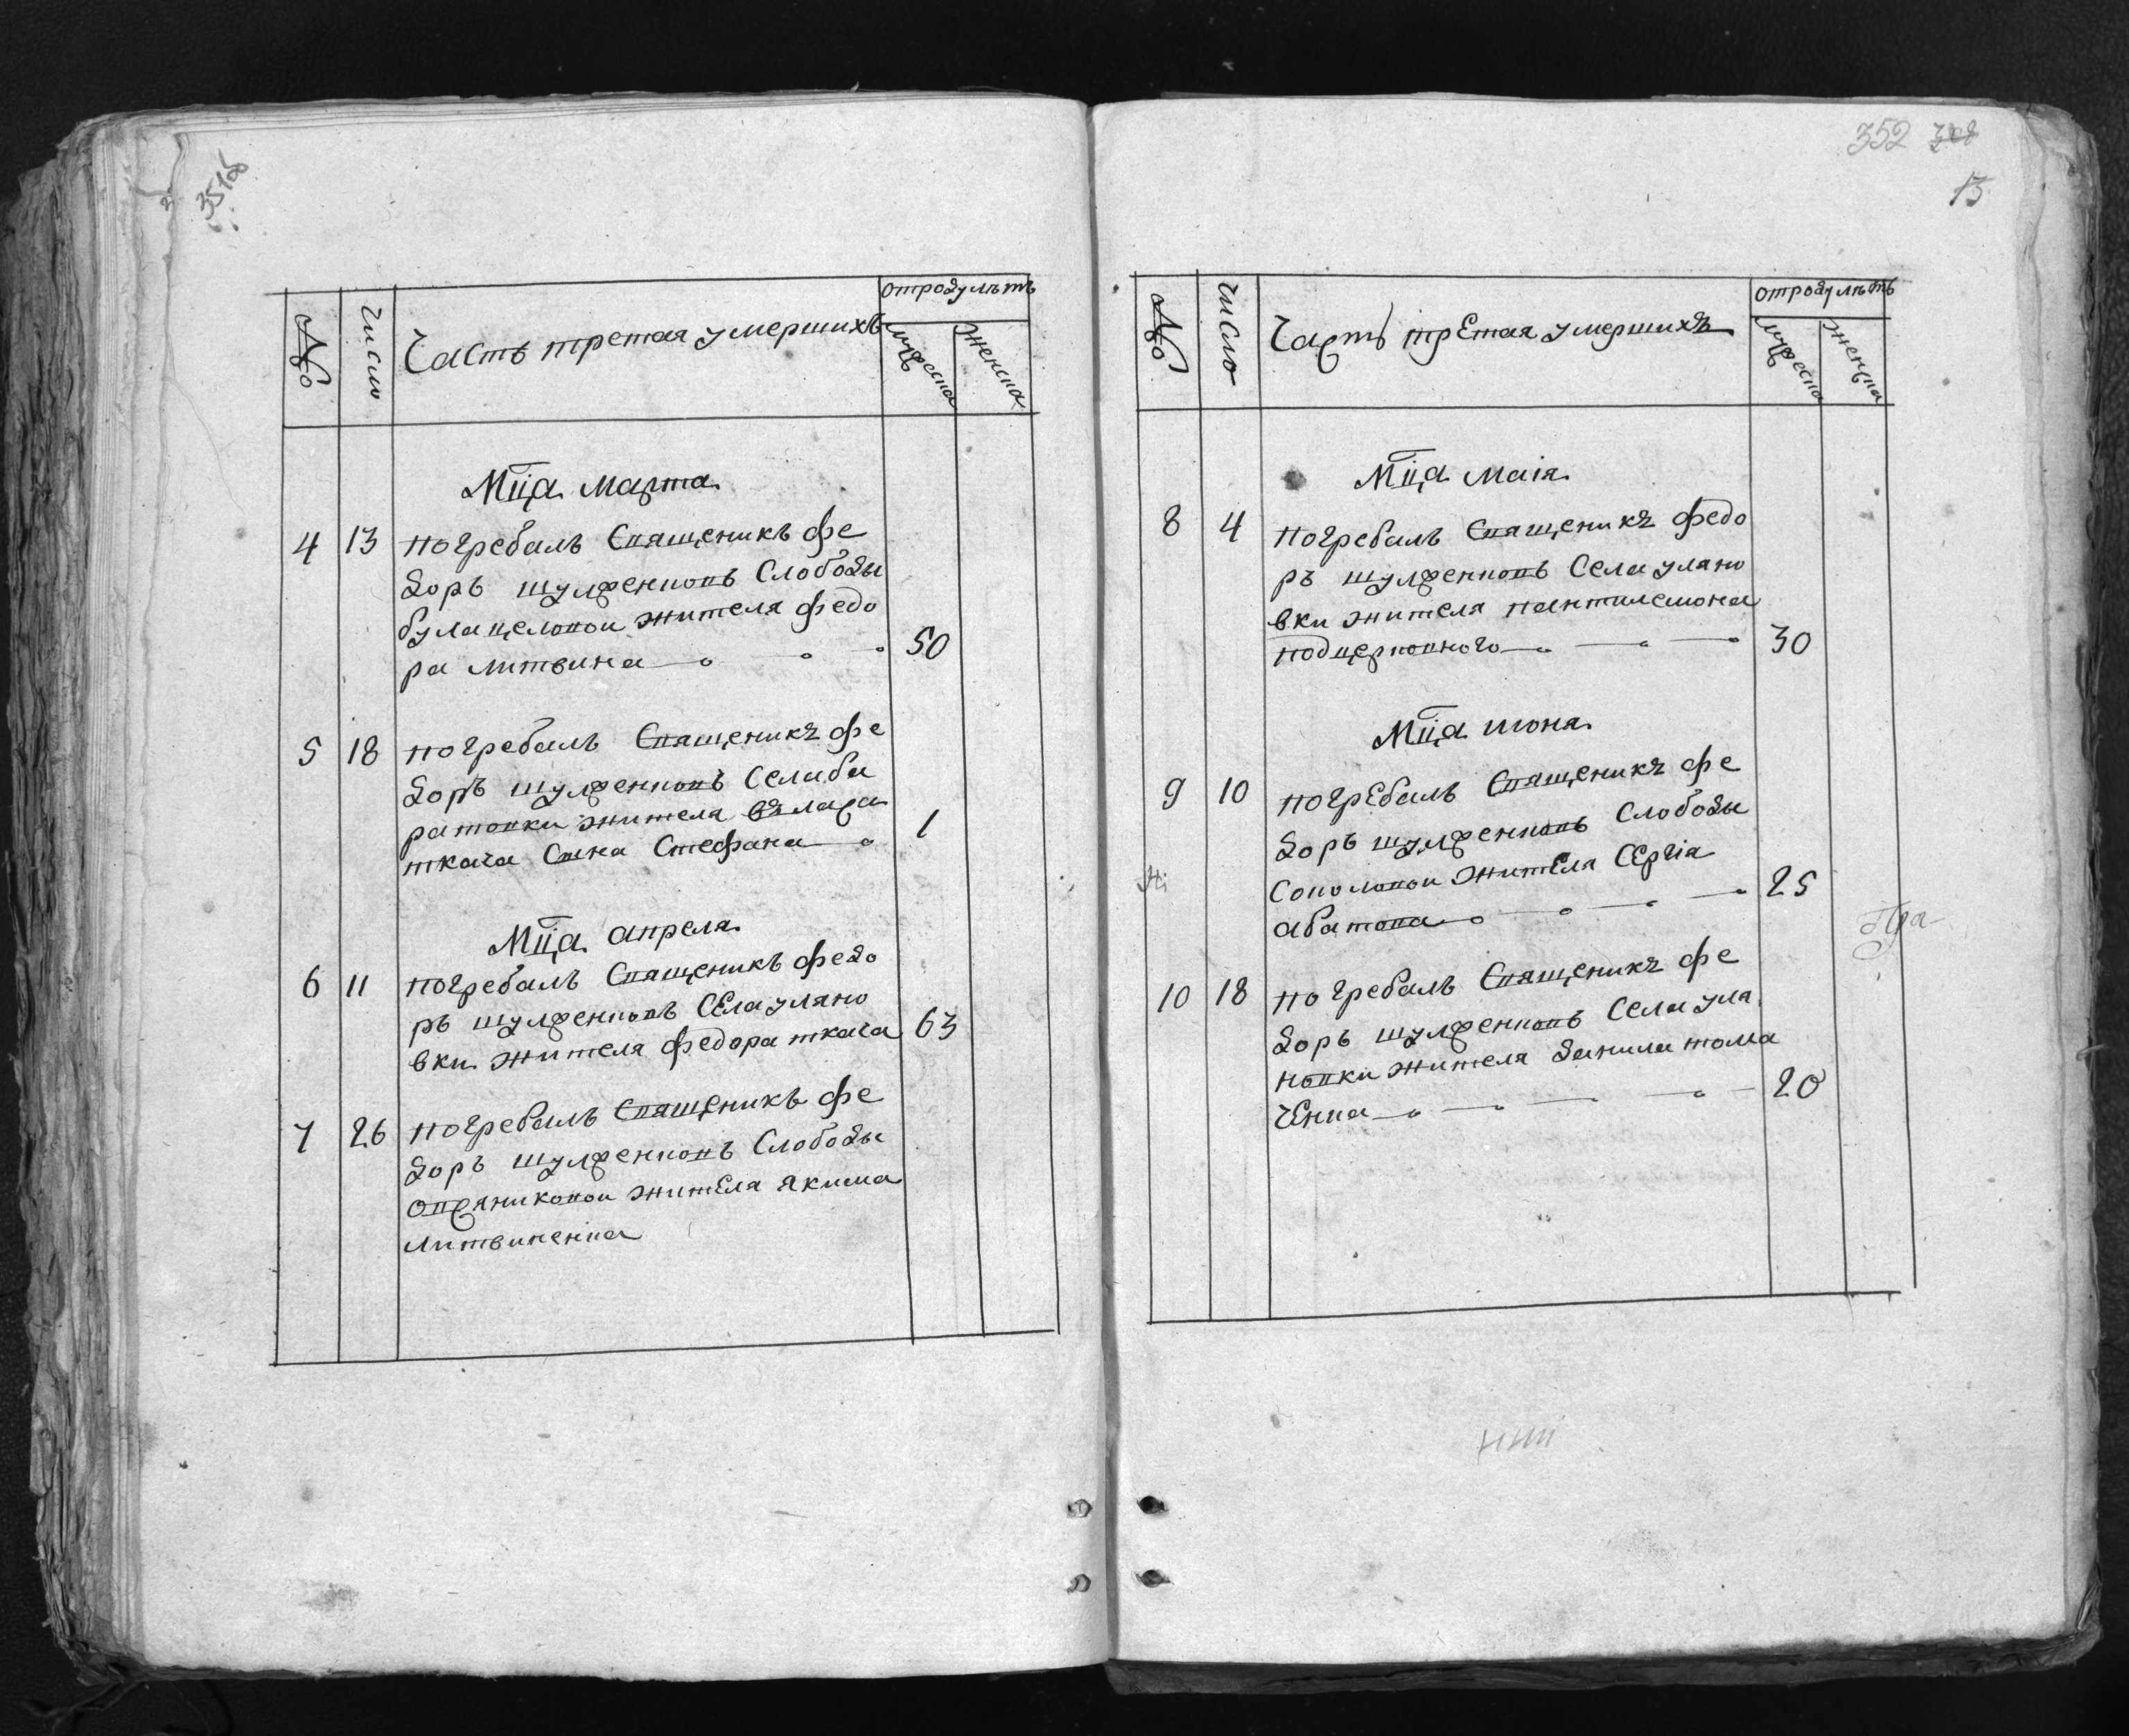 351об
№ Число Часть третая умершихъ отроду лѣтъ
мужеска женска
Мца марта
4 13 погребалъ Священикъ фе
доръ шулженковъ Слободы
булацеловои жителя федо
ра литвина 50
5 18 погребалъ Священикъ фе
доръ шулженковъ Села ба
ратовки жителя
ткача Сина Стефана 1
Мца апреля
6 11 погребалъ Священикъ федо
ръ шулженковъ Села улано
вки жителя федора ткача 63
7 26 погребалъ Священикъ фе
доръ шулженковъ Слободы
жителя якима
литвиненка
352 308
13
№ число Часть третая умершихъ отроду лѣтъ
мужеска женска
Мца маія
8 4 погребалъ Священикъ федо
ръ шулженковъ Села улано
вки жителя пантилемона
30
Мца июня
9 10 погребалъ Священикъ фе
доръ шулженковъ Слободы
Соколовои жителя Сергіа
абатова 25
10 18 погребалъ Священикъ фе
доръ шулженковъ Села ула
новки жителя данила тома
ченка 20